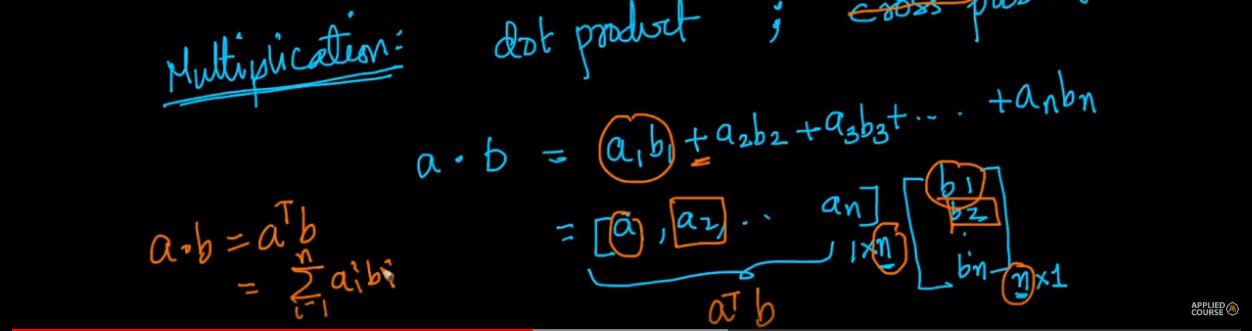 Multiplication: dot product ; cross
a · b = a₁b₁ + a₂b₂ + a₃b₃ + ... + aₙbₙ
= [a, a₂, .. aₙ] 1×n [b1 b2 : bn] n×1
aᵀb
a·b = aᵀb
= Σ i=1 n aᵢbᵢ
APPLIED COURSE